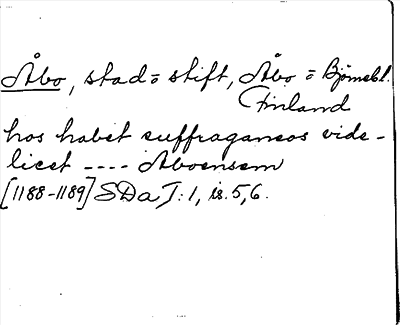 Åbo, stad o stift, Åbo o Björnebl.
Finland
hos habet suffraganeos vide-
licet ---- Aboensem
[1188-1189] SDa I: 1, s. 5, 6.